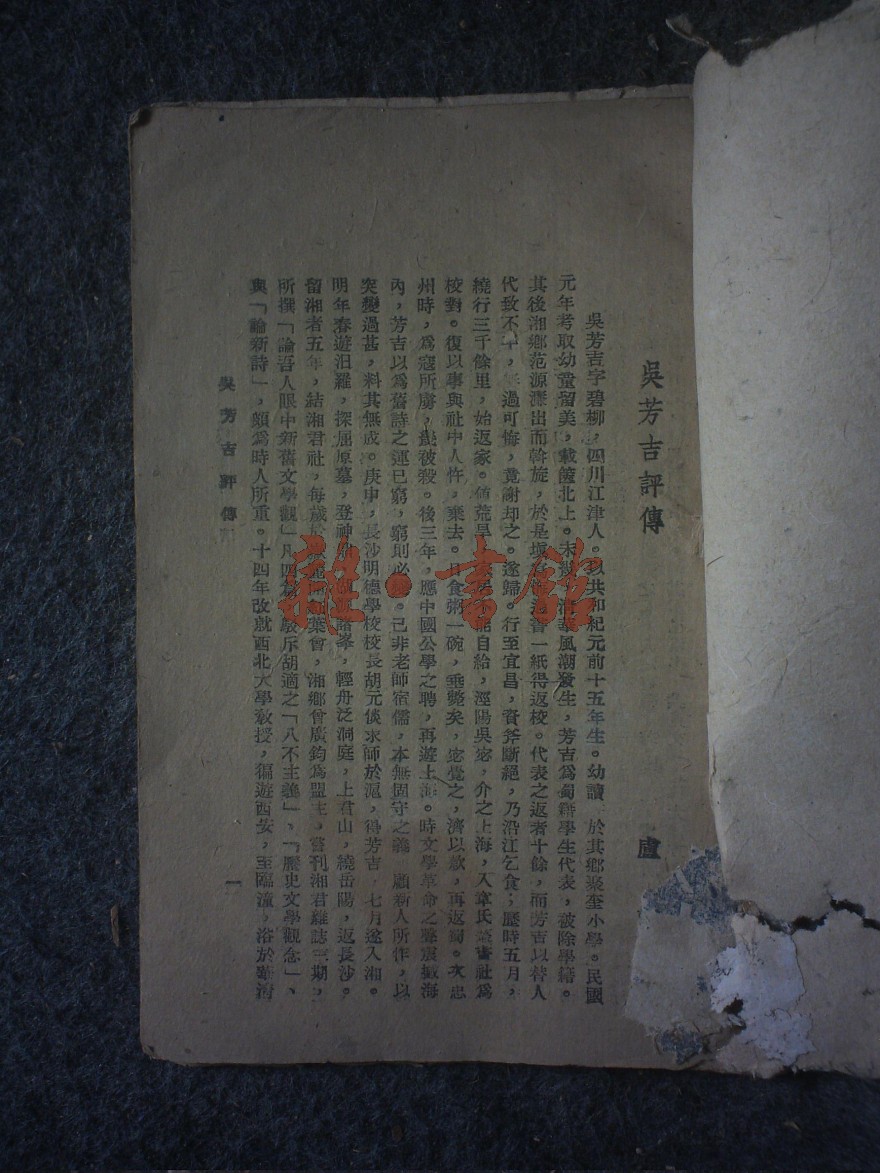 吳芳吉評傳
盧
吳芳吉字碧柳，四川江津人。以共和紀元前十五年生。幼讀 於其鄉聚奎小學。民國
元年考取幼童留美，載篋北上。未 淸華風潮發生，芳吉爲蜀籍學生代表，被除學籍。
其後湘鄉范源濂出而斡旋，於是塡 書一紙得返校。代表之返者十餘，而芳吉以替人
代致不 ， 過可悔，竟謝却之。遂歸。行至宜昌，資斧斷絕，乃沿江乞食，歷時五月，
繞行三千餘里，始返家。値荒旱， 居不能自給，涇陽吳宓，介之上海，入章氏 書社爲
校對。復以事與社中人忤，棄去。日食粥一碗，垂斃矣，宓覺之，濟以款，再返蜀。 忠
州時，爲寇所虜， 被殺。後三年，應中國公學之聘，再遊上海。時文學革命之 震撼海
內，芳吉以爲舊詩之運已窮，窮則必變。己非老師宿儒，本無固守之義 顧新人所作，以
突變過甚，料其無成。庚申，長沙明德學校校長胡元倓求師於滬，得芳吉 七月遂入湘。
明年春遊汨羅，探屈原墓，登神鼎 諸峯，輕舟泛洞庭，上君山，繞岳陽，返長沙。
留湘者五年，結湘君社，每歲於 葉會，湘鄉曾廣鈞爲盟主，嘗刊湘君雜誌三期，
所撰「論吾人眼中新舊文學觀」凡四篇 駁斥胡適之「八不主義」，「歷史文學觀念」、
與「論新詩」，頗爲時人所重。十四年改就西北大學敎授，徧遊西安，至臨潼，浴於華淸
吳芳吉評傳
一
雜·書館